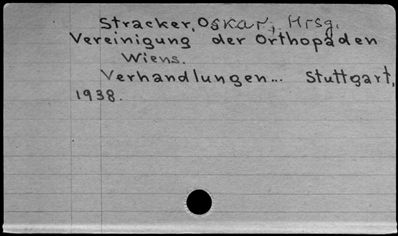 Stracker, Oskar, Hrsg.
Vereinigung der Orthopäden
Wiens.
Verhandlungen... Stuttgart,
1938.